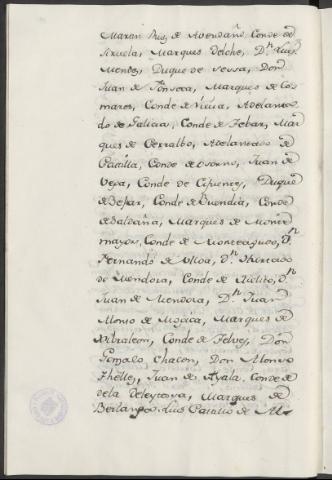 Maron Ruy, de Avendaño, Conde de
Siruela, Marques Delche, Dn. Luis
Mendez, Duque de Sessa, Don
Juan de Fonseca, Marques de Co
mares, Conde de Nieva, Adelanta
do de Galicia, Conde de Febar, Mar
ques de Cerralbo, Adelantado de
Castilla, Conde de Osorno, Juan de
Vega, Conde de Cifuentes, Duque
de Bejar, Conde de Buendia, Conde
de Saldaña, Marques de Monte
mayor, Conde de Monteagudo, Dn.
Fernando de Ulloa, Dn. Hurtado
de Mendoza, Conde de Melito, Dn.
Juan de Mendoza, Dn. Juan
Alonso de Moxica, Marques de
Vibraleon, Conde de Felves, Don
Gonzalo Chacon, Don Alonso
Thelles, Juan de Ayala, Conde de
de la, Marques de
Berlanga, Luis Castillo de